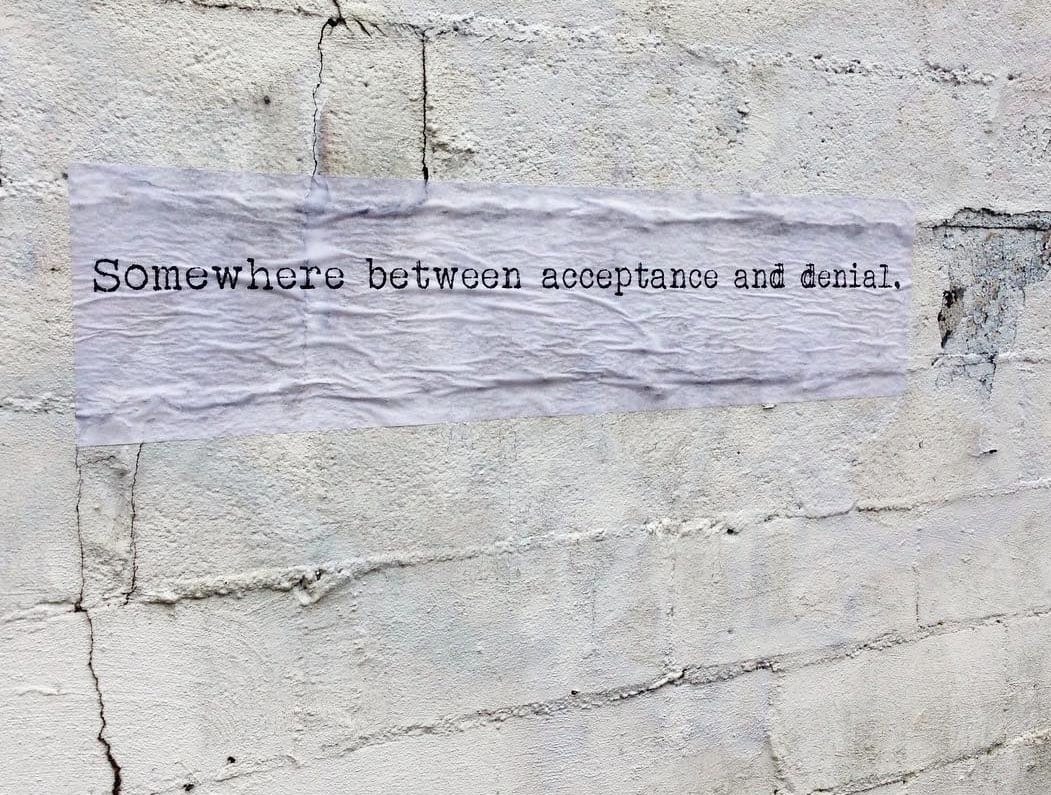 Somewhere between acceptance and denial.